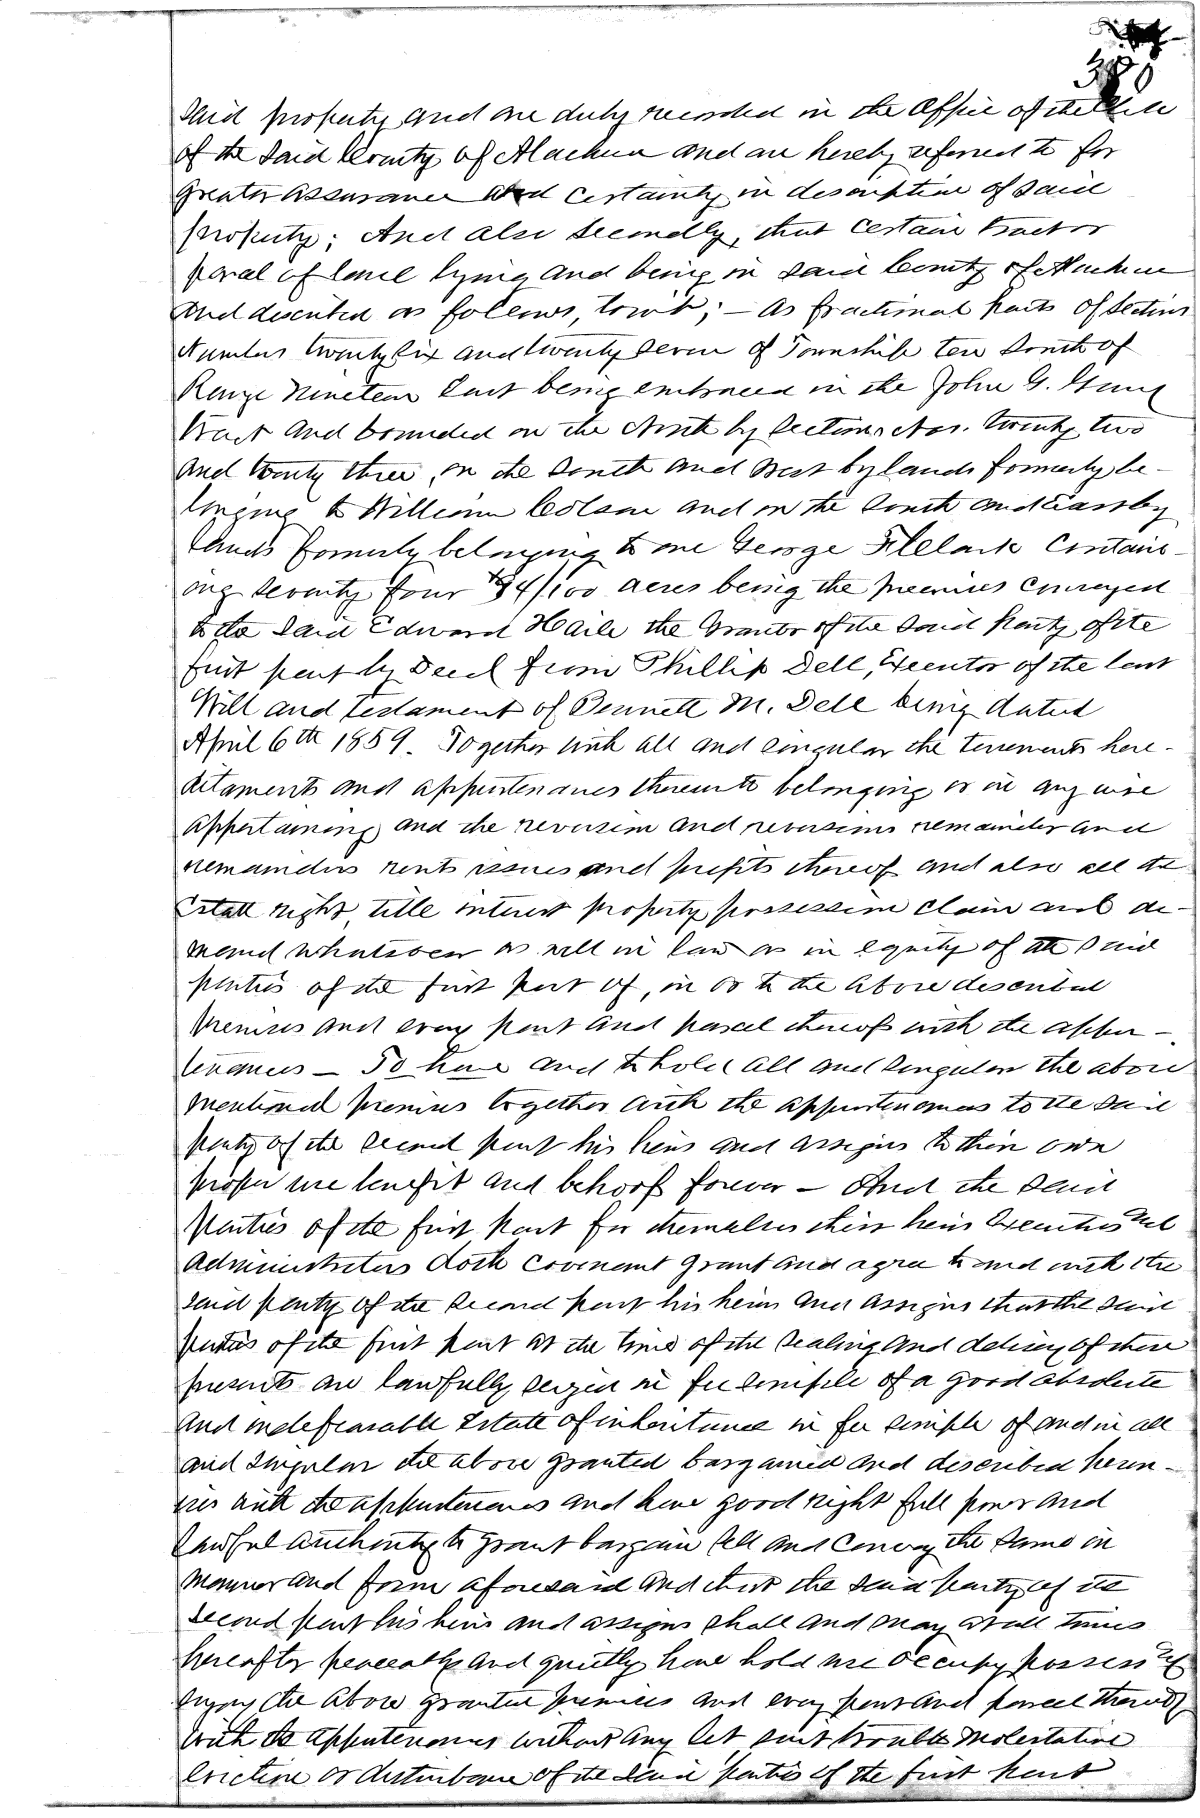 380
said property and are duly recorded in the Office of the Clerk
of the said County of Alachua and are hereby referred to for
greater assurance and certainty in description of said
property; And also Secondly, that certain tract or
parcel of land lying and being in said County of Alachua
and described as follows, towit; – As fractional parts of Sections
Numbers twenty six and twenty seven of Township ten South of
Range Nineteen East being embraced in the John G.
tract and bounded on the North by Sections Nos. twenty two
and twenty three, on the South and West by lands formerly be-
longing to William Colson and on the South and East by
lands formerly belonging to one George Clark contain-
ing seventy four 34/100 acres being the premises conveyed
to the said Edward Haile the Grantor of the said party of the
first part by Deed from Phillip Dell, Executor of the last
Will and testament of Bennett M. Dell being dated
April 6th 1859. Together with all and singular the tenements here-
ditaments and appurtenances thereunto belonging or in any wise
appertaining and the reversion and reversions remainder and
remainders rents issues and profits thereof and also all the
Estate right, title interest property possession claim and de-
mand whatsoever as well in law as in equity of the said
parties of the first part of, in or to the above described
premises and every part and parcel thereof with the appur-
tenances – To have and to hold all and singular the above
mentioned premises together with the appurtenances to the said
party of the second part his heirs and assigns to their own
proper use benefit and behoof forever – And the said
parties of the first part for themselves their heirs Executors and
administrators doth covenant grant and agree to and with the
said party of the second part his heirs and assigns that the said
parties of the first part at the time of the sealing and delivery of these
presents are lawfully seized in fee simple of a good absolute
and indefeasable Estate of inheritance in fee simple of and in all
and singular the above granted bargained and described prem-
ises with the appurtenances and have good right full power and
lawful authority to grant bargain sell and convey the same in
manner and form aforesaid and that the said party of the
second part his heirs and assigns shall and may at all times
hereafter peaceably and quietly have hold use occupy possess and
enjoy the above granted premises and every part and parcel thereof
with the appurtenances without any let, suit trouble molestation
eviction or disturbance of the said parties of the first part